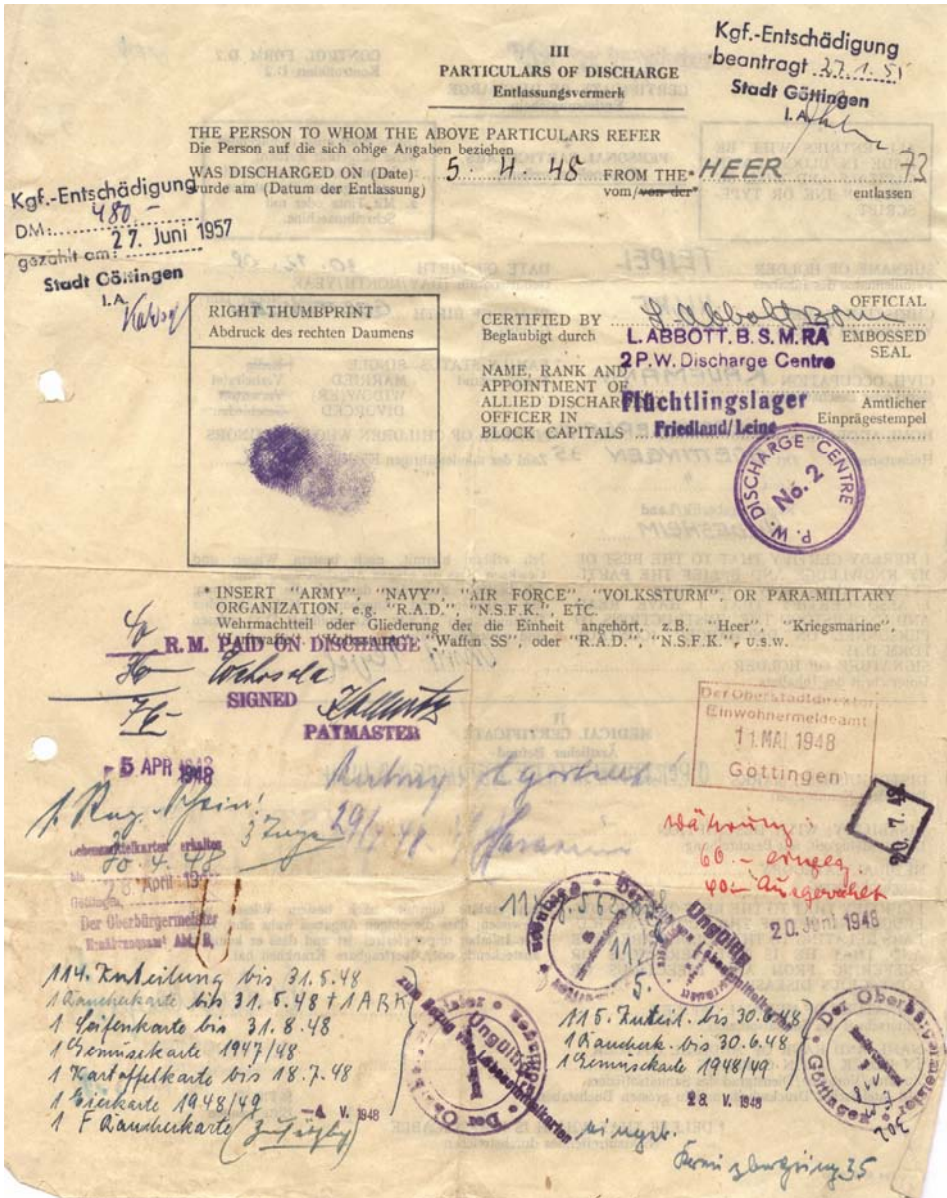 III
PARTICULARS OF DISCHARGE
Entlassungsvermerk
Kgf.-Entschädigung
beantragt 27.1.55
Stadt Göttingen
I.A.
THE PERSON TO WHOM THE ABOVE PARTICULARS REFER
Die Person auf die sich obige Angaben beziehen
WAS DISCHARGED ON (Date) 5. 4. 48 FROM THE* HEER 73
wurde am (Datum der Entlassung) vom/von der* entlassen
Kgf.-Entschädigung
DM: 480,-
gezahlt am: 27. Juni 1957
Stadt Göttingen
I.A.
RIGHT THUMBPRINT
Abdruck des rechten Daumens
CERTIFIED BY
Beglaubigt durch
L. ABBOTT. B. S. M. RA
2 P.W. Discharge Centre
OFFICIAL
EMBOSSED
SEAL
NAME, RANK AND
APPOINTMENT OF
ALLIED DISCHARGE
OFFICER IN
BLOCK CAPITALS
Flüchtlingslager
Friedland/Leine
Amtlicher
Einprägestempel
P. W. DISCHARGE CENTRE
No. 2
* INSERT "ARMY", "NAVY", "AIR FORCE", "VOLKSSTURM", OR PARA-MILITARY
ORGANIZATION, e.g. "R.A.D.", "N.S.F.K.", ETC.
Wehrmachtteil oder Gliederung der die Einheit angehört, z.B. "Heer", "Kriegsmarine",
"Luftwaffe", "Volkssturm", "Waffen SS", oder "R.A.D.", "N.S.F.K.", u.s.w.
R. M. PAID ON DISCHARGE
SIGNED
PAYMASTER
- 5 APR 1948
Der Oberstadtdirektor
Einwohnermeldeamt
11. MAI 1948
Göttingen
20. 7. 49
Lebensmittelkarten erhalten
bis 30.4.48
28. April 194
Göttingen,
Der Oberbürgermeister
Ernährungsamt Abt. B,
29/4 48
Währung:
60.-
40.-
20. Juni 1948
Ungültig
114. Zuteilung bis 31.5.48
1 Raucherkarte bis 31.5.48 + 1 ARK
1 Seifenkarte bis 31.8.48
1 Gemüsekarte 1947/48
1 Kartoffelkarte bis 18.7.48
1 Eierkarte 1948/49
1 F Raucherkarte
-4. V. 1948
Der Oberbürgermeister
Göttingen
Ungültig
zum Bezug von Lebensmittelkarten
115. Zuteil. bis 30.6.48
1 Raucherk. bis 30.6.48
1 Gemüsekarte 1948/49
28. V. 1948
Der Oberbürgermeister
Göttingen
35